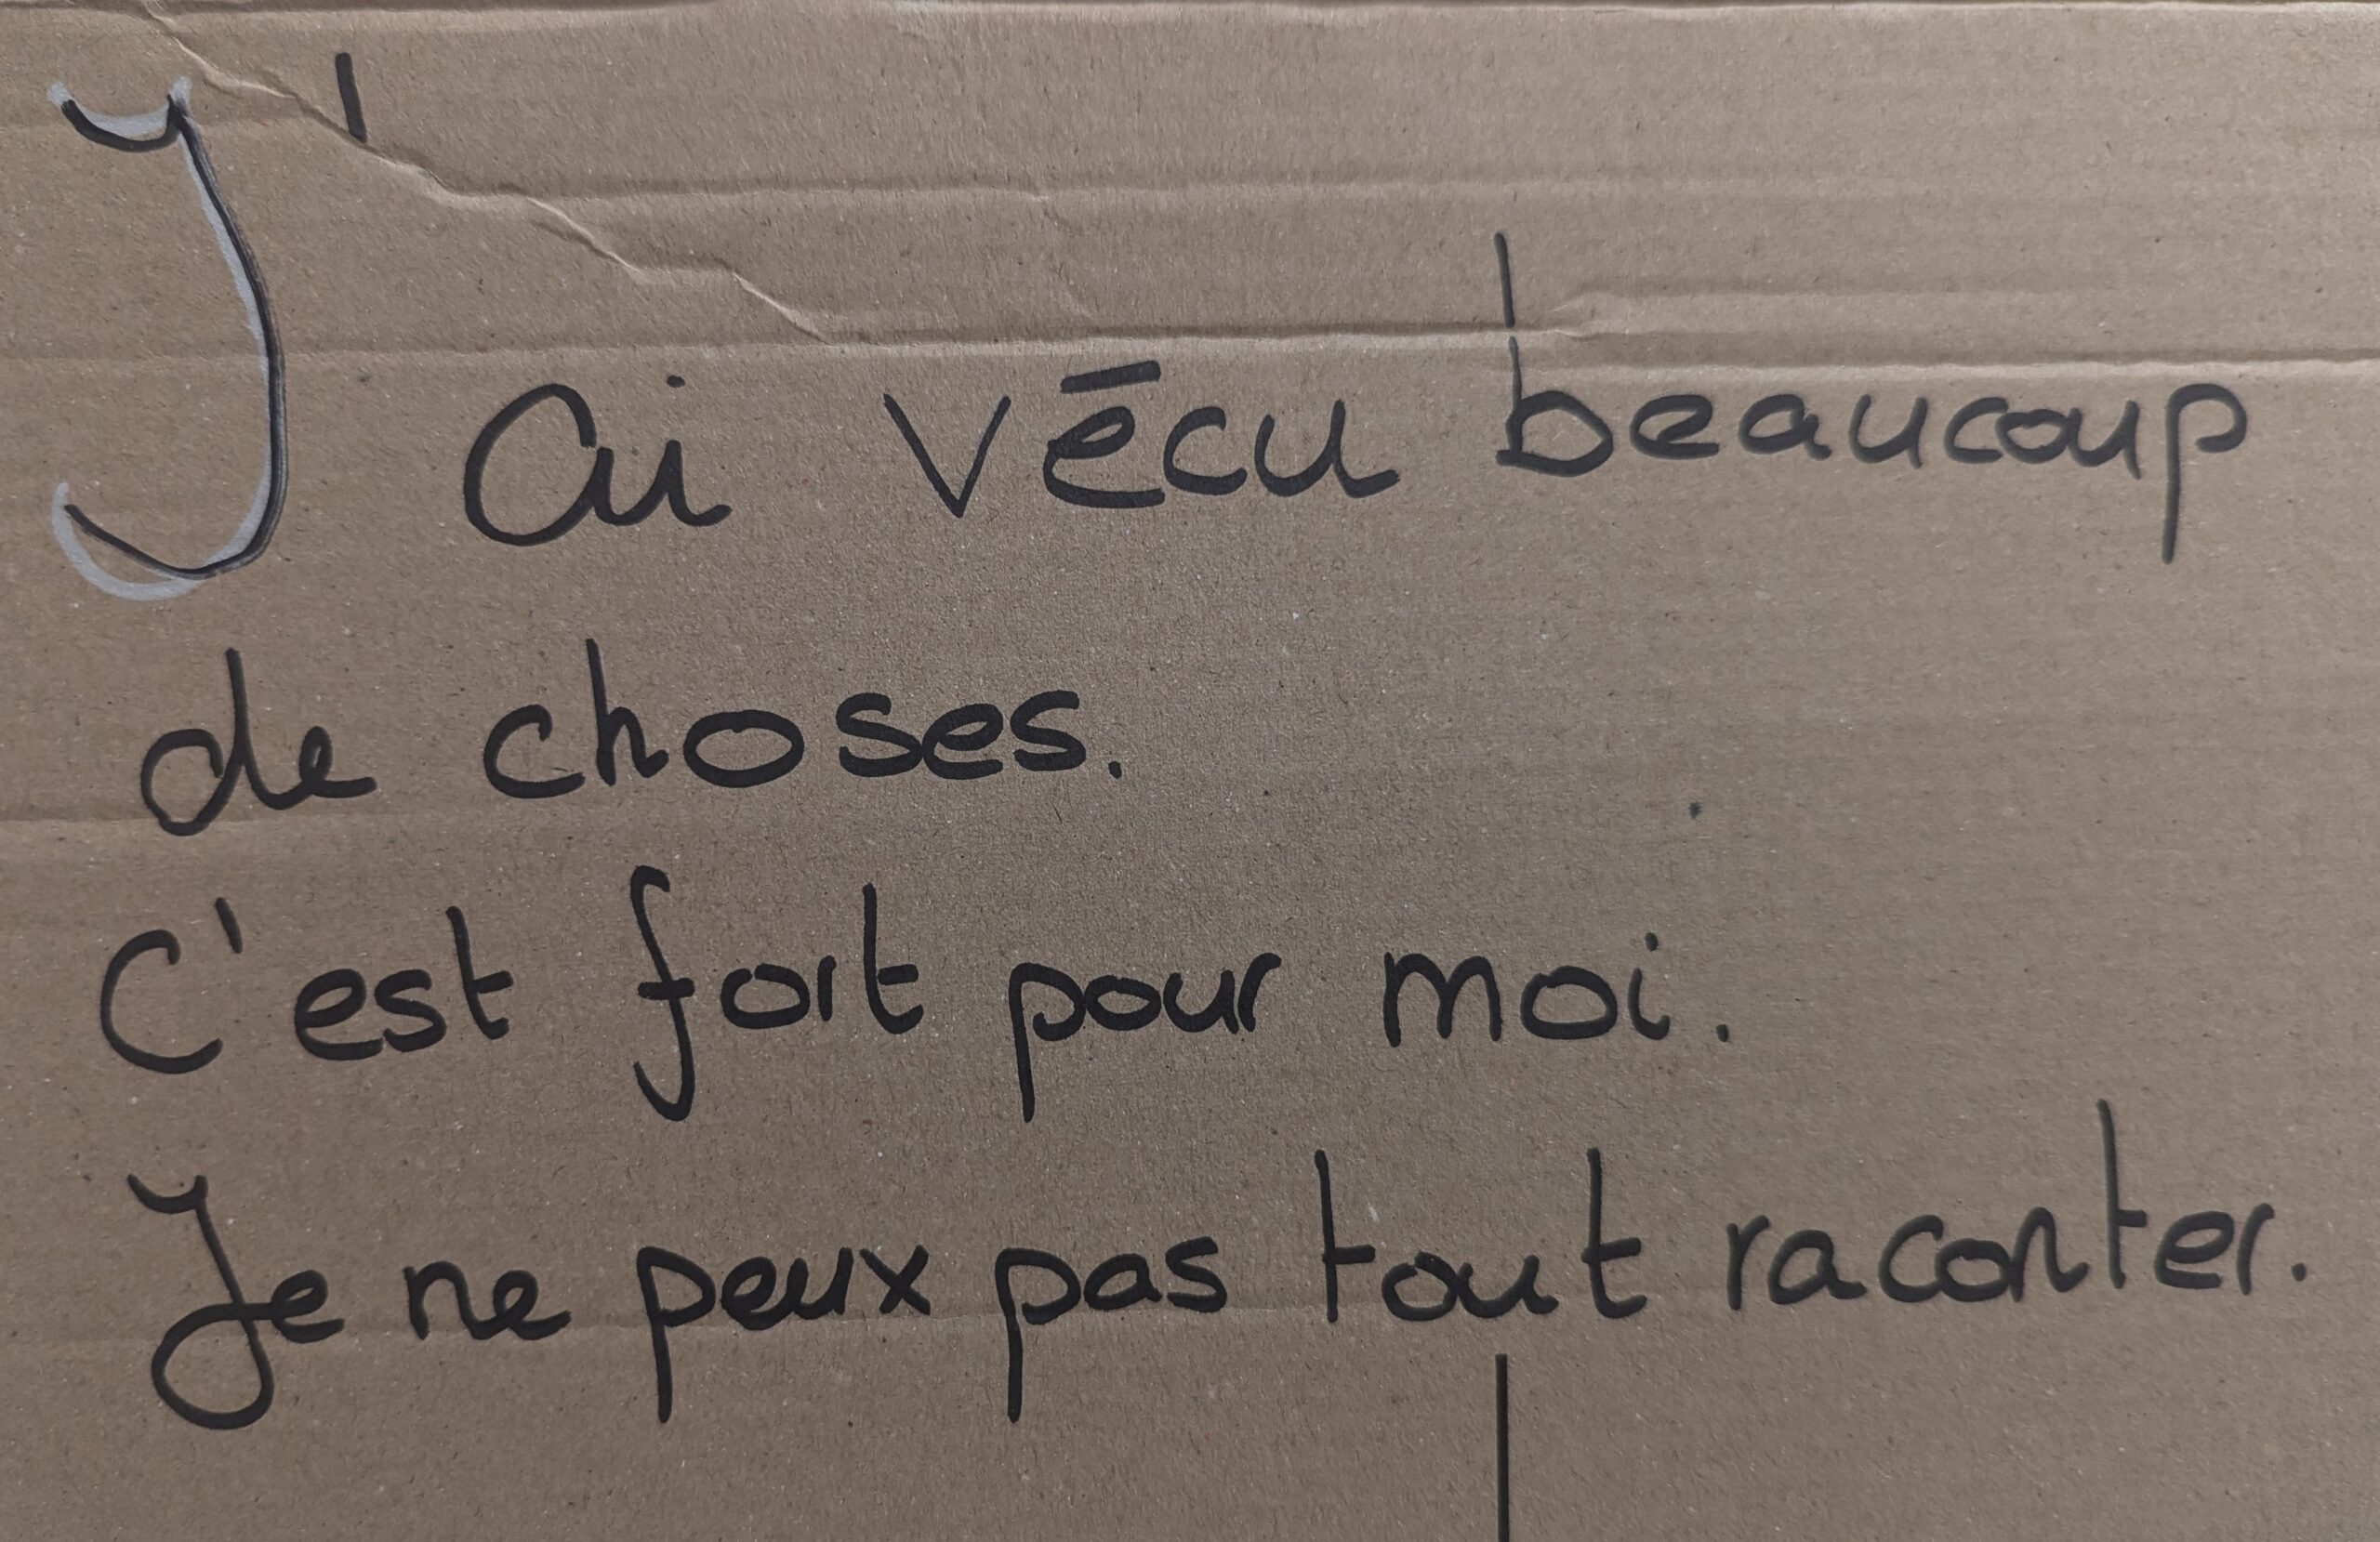 J'ai vécu beaucoup
de choses.
C'est fort pour moi.
Je ne peux pas tout raconter.